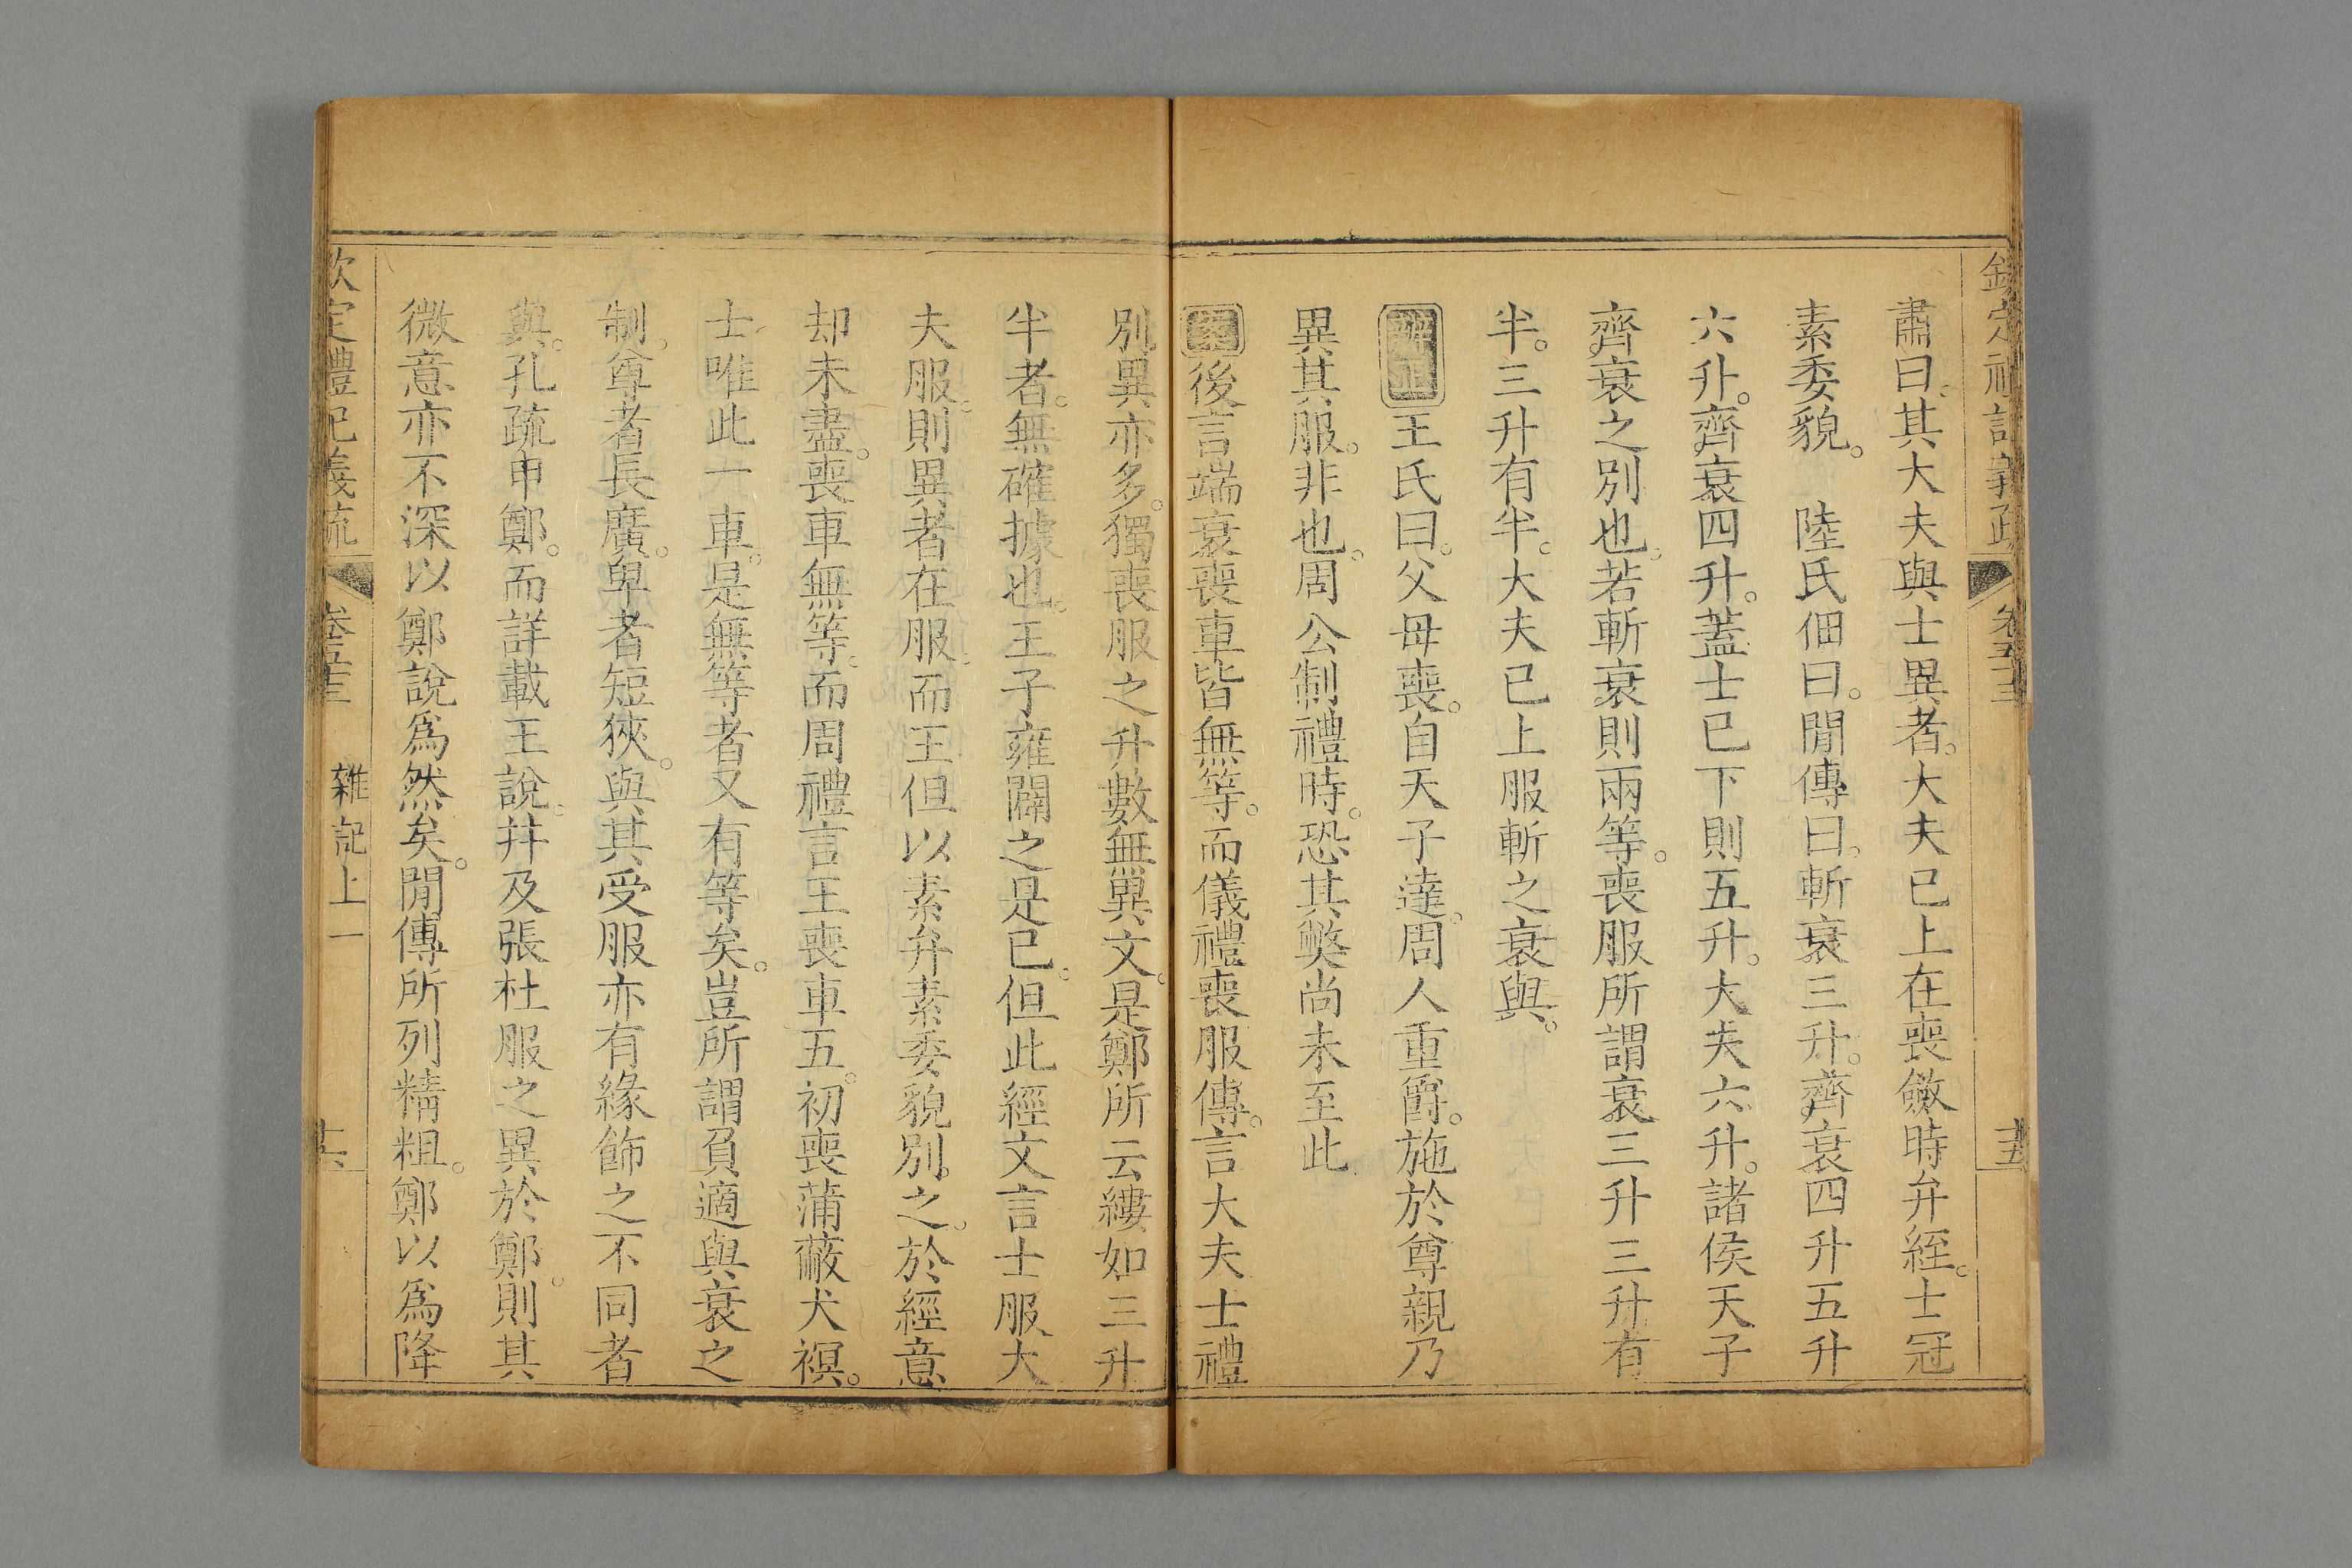 欽定禮記義疏 卷五十三 十五
肅曰。其大夫與士異者。大夫已上在喪斂時弁絰。士冠
素委貌。 陸氏佃曰。閒傳曰。斬衰三升。齊衰四升五升
六升。齊衰四升。蓋士已下則五升。大夫六升。諸侯天子
齊衰之別也。若斬衰則兩等。喪服所謂衰三升三升有
半。三升有半。大夫已上服斬之衰與。
辨正王氏曰。父母喪。自天子達。周人重爵。施於尊親乃
異其服。非也。周公制禮時。恐其獘尚未至此
案後言端衰喪車皆無等。而儀禮喪服傳。言大夫士禮
別異亦多。獨喪服之升數無異文。是鄭所云縷如三升
半者。無確據也。王子雍闢之是已。但此經文言士服大
夫服。則異者在服。而王但以素弁素委貌別之。於經意
却未盡。喪車無等。而周禮言王喪車五。初喪蒲蔽犬𧜀。
士唯此一車。是無等者又有等矣。豈所謂負適與衰之
制。尊者長廣。卑者短狹。與其受服亦有緣飾之不同者
與。孔疏申鄭。而詳載王說。幷及張杜服之異於鄭。則其
微意亦不深以鄭說爲然矣。閒傳所列精粗。鄭以爲降
欽定禮記義疏 卷五十三 雜記上一 十六